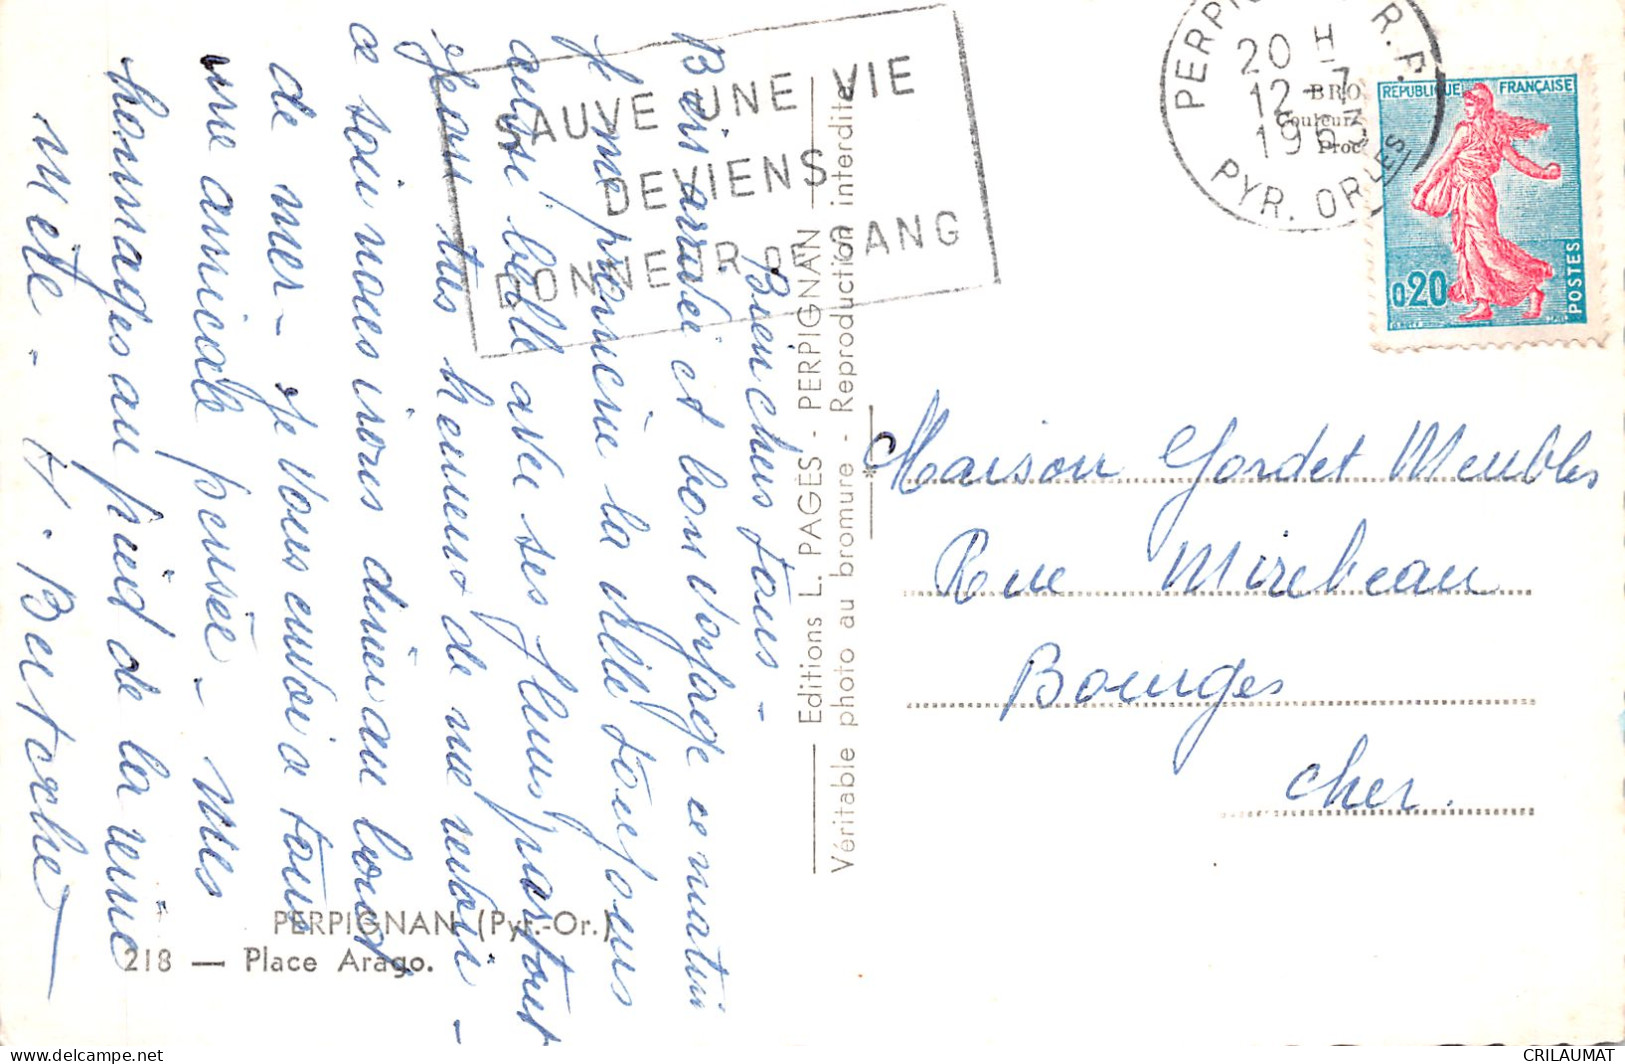 Bien chers tous -
Bien arrivée et bon voyage ce matin
Je me promène la ville toujours
aussi belle avec ses fleurs partout
Jean très heureux de me revoir -
a soir nous irons dîner au bord
de mer - Je vous envoi a tous
une amicale pensée - Mes
hommages au pied de la reine
Mète - H.
SAUVE UNE VIE
DEVIENS
DONNEUR DE SANG
Editions L. PAGÈS - PERPIGNAN
Véritable photo au bromure - Reproduction interdite
PERPIGNAN R.P.
20 H
12-7
1963
PYR. ORLES
BRO
Couleurs
Proc
REPUBLIQUE FRANÇAISE
0,20
POSTES
Maison Gordet Meubles
Rue Mirebeau
Bourges
Cher.
PERPIGNAN (Pyr.-Or.)
218 — Place Arago.
CRILAUMAT